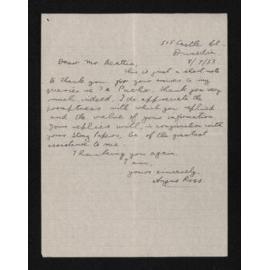 505 Castle St.
Dunedin
9/7/53
Dear Mr. Beattie,
This is just a short note
to thank you for your answers to my
queries re Te Puoho. Thank you very
much, indeed. I do appreciate the
promptness with which you replied
and the value of your information.
Your replies will, in conjunction with
your Story Papers, be of the greatest
assistance to me.
Thanking you again.
I am,
yours sincerely,
Angus Ross.